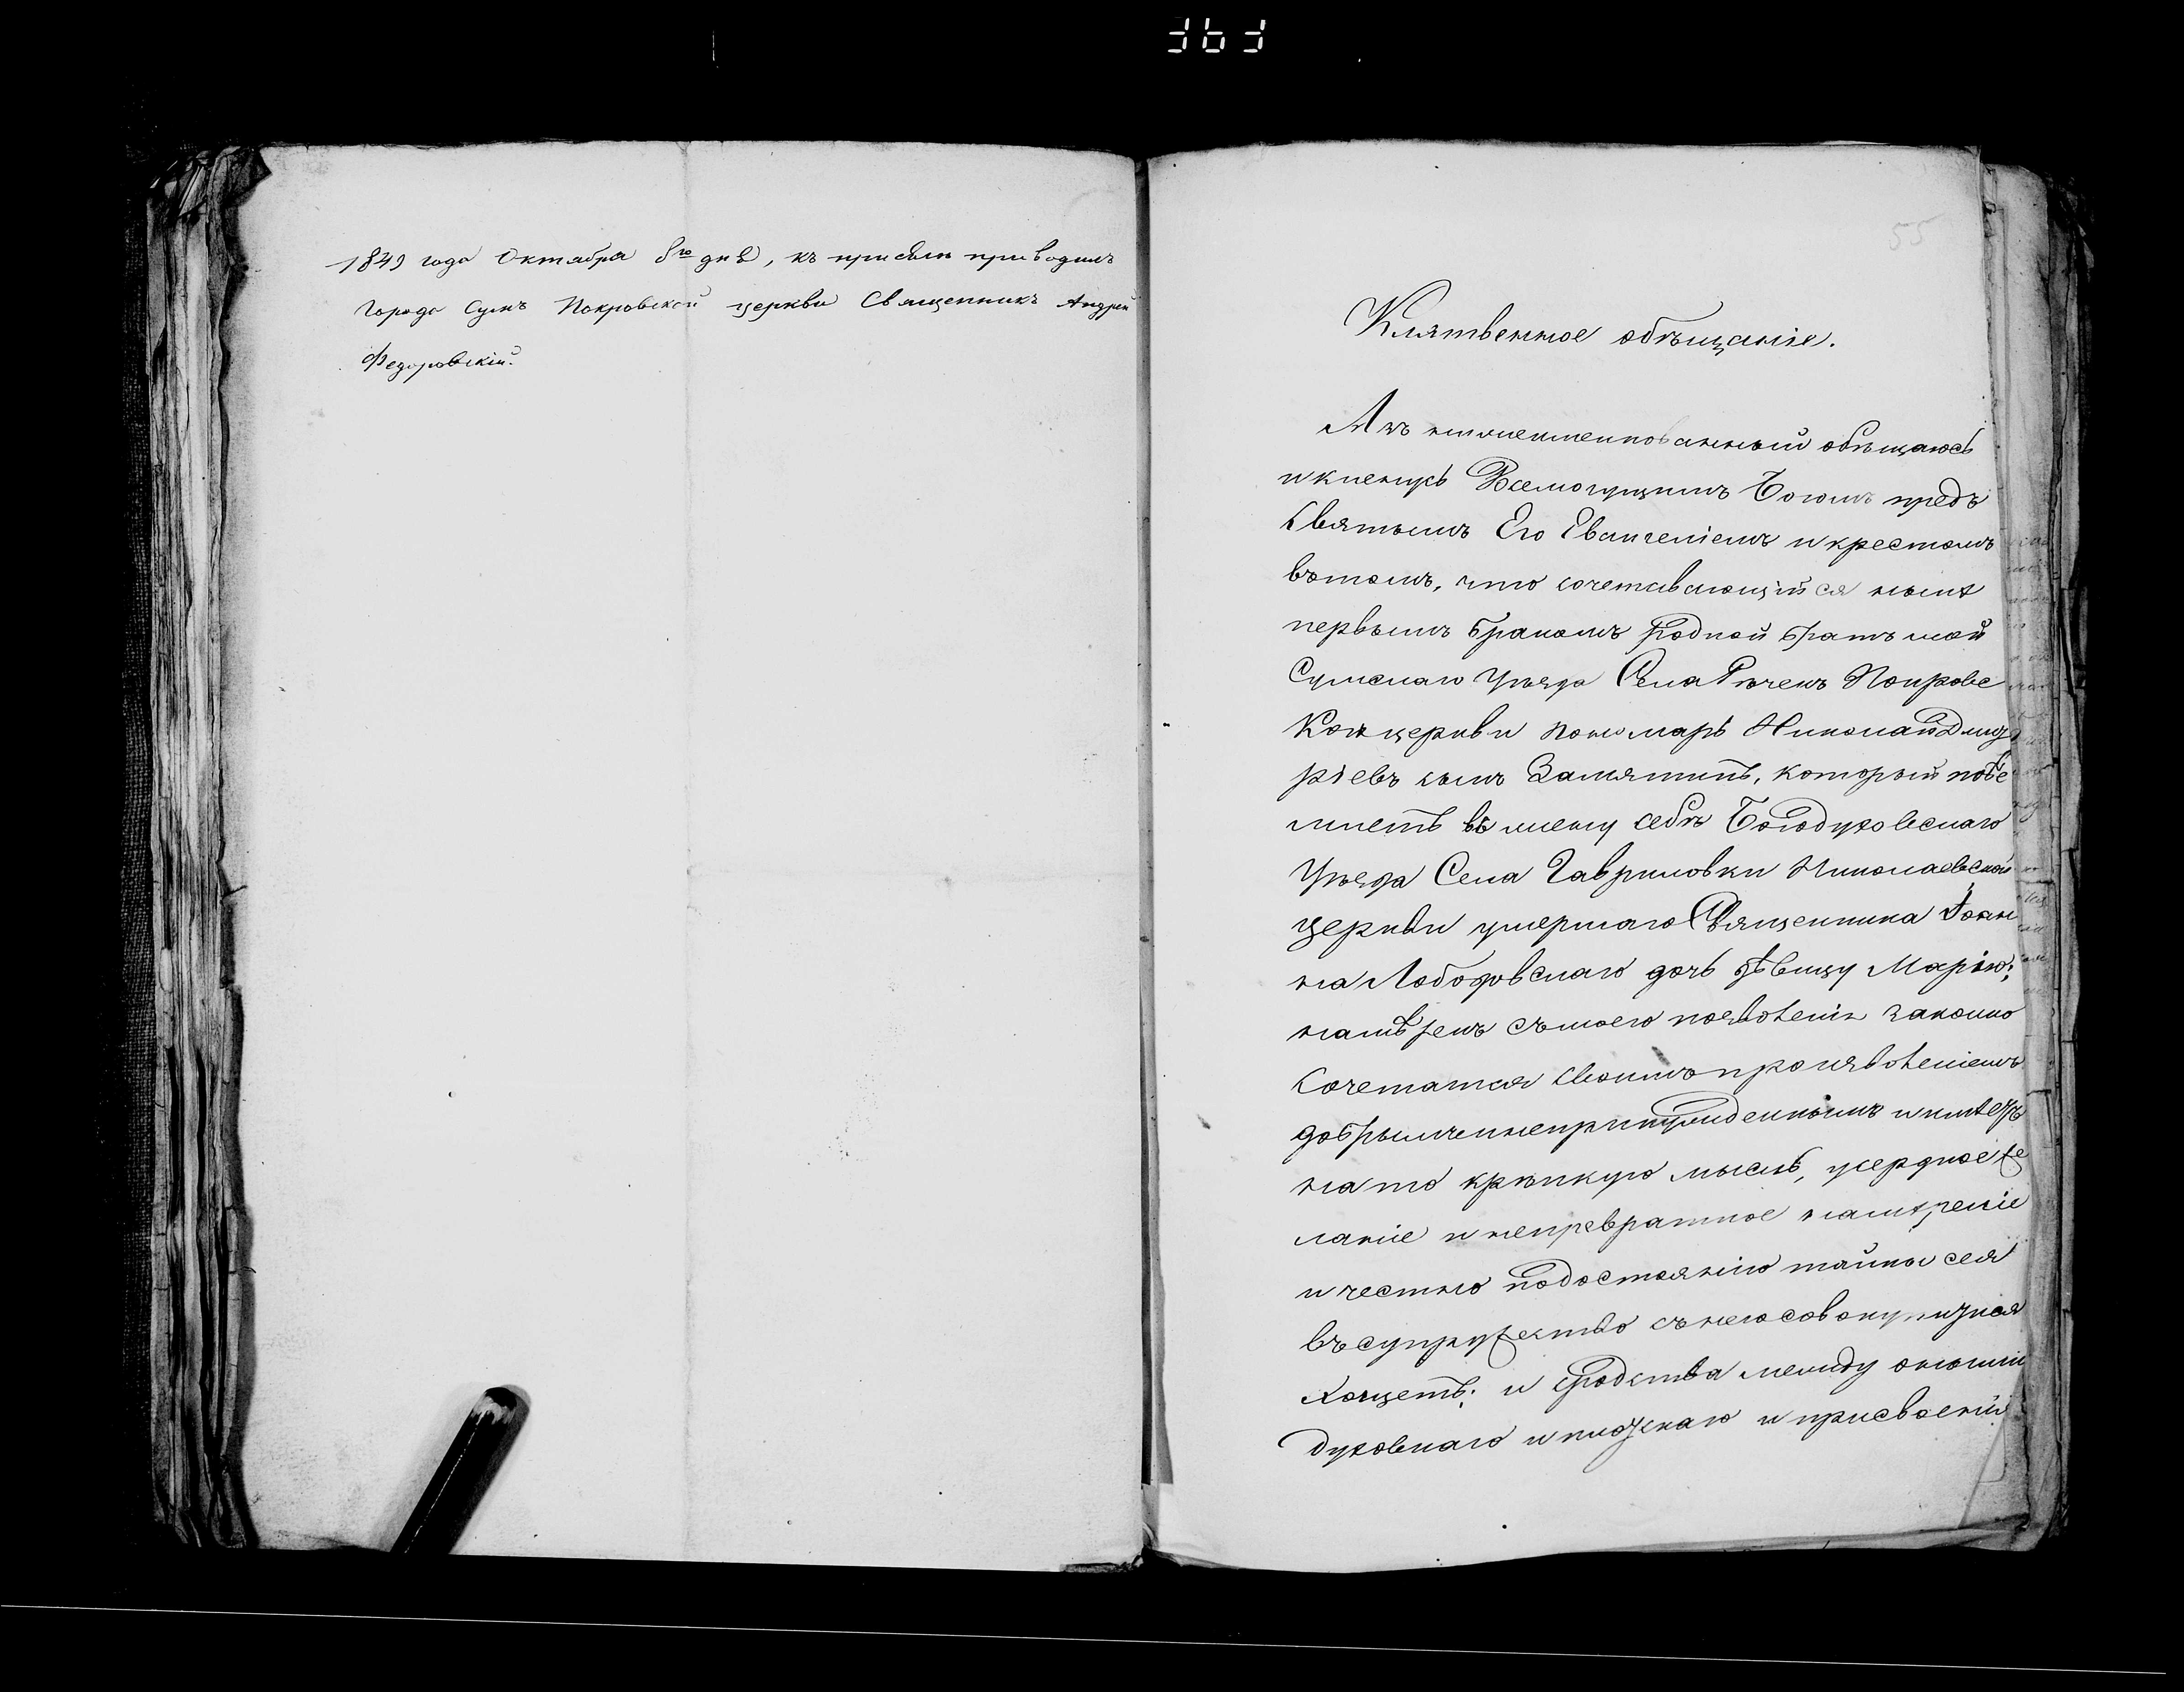 1849 года Октября 8го дня, къ присягѣ приводилъ
Города Сумъ Покровской церкви Священникъ Андрей
Федоровскій.
55
Клятвенное обѣщаніе.
Азъ нижеименнованный обѣщаюсь
и кленусь Всемогущимъ Богомъ предъ
Святымъ Его Евангеліемъ и крестомъ
въ томъ, что сочетавающійся нынѣ
первымъ бракомъ родной братъ мой
Сумскаго Уѣзда Села Рѣчекъ Покровс
кой церкви пономарь Николай Дмит
ріевъ сынъ Замятинъ, который пое
млетъ въ жену себѣ Богодуховскаго
Уѣзда Села Гавриловки Николаевской
церкви умершаго Священника Іоан
на Лободовскаго дочь дѣвицу Марію;
намѣренъ съ моего позволенія законно
сочетатся своимъ произволеніемъ
добрымъ и непринужденнымъ и имѣетъ
на то крѣпкую мысль, усердное же
ланіе и непревратное намѣреніе
и честно подостоянію тайны сея
въ супружество съ нею совокупитися
хощетъ; и сродства между оными
духовнаго и плотскаго и присвоенія